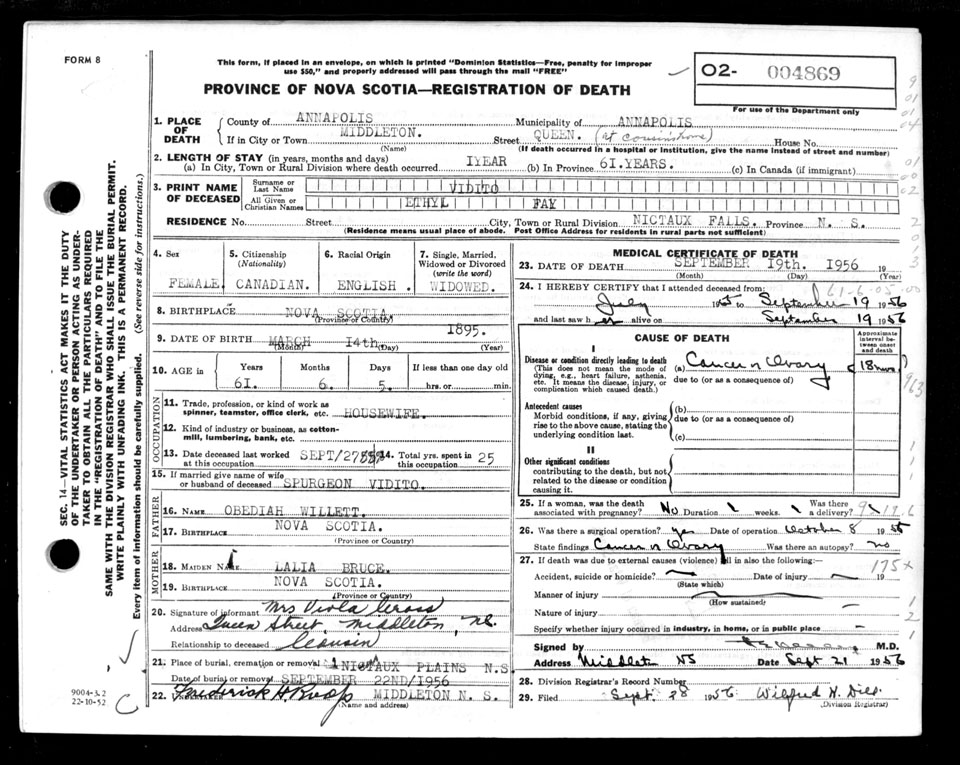 FORM 8
This form, if placed in an envelope, on which is printed "Dominion Statistics—Free, penalty for improper
use $50," and properly addressed will pass through the mail "FREE"
O2- 004869
For use of the Department only
PROVINCE OF NOVA SCOTIA—REGISTRATION OF DEATH
1. PLACE OF DEATH
County of ANNAPOLIS Municipality of ANNAPOLIS
If in City or Town MIDDLETON. Street QUEEN. (at cousin's home) House No.
(Name) (If death occurred in a hospital or institution, give the name instead of street and number)
2. LENGTH OF STAY (in years, months and days)
(a) In City, Town or Rural Division where death occurred IYEAR (b) In Province 6I.YEARS. (c) In Canada (if immigrant)
3. PRINT NAME OF DECEASED
Surname or Last Name VIDITO
All Given or Christian Names ETHYL FAY
RESIDENCE No. Street City, Town or Rural Division NICTAUX FALLS. Province N. S.
(Residence means usual place of abode. Post Office Address for residents in rural parts not sufficient)
4. Sex
FEMALE
5. Citizenship
(Nationality)
CANADIAN.
6. Racial Origin
ENGLISH.
7. Single, Married, Widowed or Divorced
(write the word)
WIDOWED.
8. BIRTHPLACE NOVA SCOTIA.
(Province or Country)
9. DATE OF BIRTH MARCH I4th. 1895.
(Month) (Day) (Year)
10. AGE in
Years Months Days If less than one day old
6I. 6. 5. hrs. or min.
OCCUPATION
11. Trade, profession, or kind of work as
spinner, teamster, office clerk, etc. HOUSEWIFE.
12. Kind of industry or business, as cotton-
mill, lumbering, bank, etc.
13. Date deceased last worked
at this occupation SEPT/27
14. Total yrs. spent in
this occupation 25
15. If married give name of wife
or husband of deceased SPURGEON VIDITO.
FATHER
16. NAME OBEDIAH WILLETT.
17. BIRTHPLACE NOVA SCOTIA.
(Province or Country)
MOTHER
18. MAIDEN NAME LALIA BRUCE.
19. BIRTHPLACE NOVA SCOTIA.
(Province or Country)
20. Signature of informant Mrs Viola Cross
Address Queen Street, Middleton, N.S.
Relationship to deceased Cousin
21. Place of burial, cremation or removal NICTAUX PLAINS N.S
Date of burial or removal SEPTEMBER 22ND/1956
22. Frederick H. Roop MIDDLETON N. S.
(Name and address)
9004-3.2
22-10-52
C
MEDICAL CERTIFICATE OF DEATH
23. DATE OF DEATH SEPTEMBER I9th. I956 19
(Month) (Day) (Year)
24. I HEREBY CERTIFY that I attended deceased from: 61-6-05-00
July 1955 to September 19 1956
and last saw her alive on September 19 1956
CAUSE OF DEATH
Approximate interval between onset and death
I
Disease or condition directly leading to death
(This does not mean the mode of
dying, e.g., heart failure, asthenia,
etc. It means the disease, injury, or
complication which caused death.)
(a) Cancer of Ovary 18 mos
due to (or as a consequence of)
Antecedent causes
Morbid conditions, if any, giving
rise to the above cause, stating the
underlying condition last.
(b)
due to (or as a consequence of)
(c)
II
Other significant conditions
contributing to the death, but not
related to the disease or condition
causing it.
25. If a woman, was the death
associated with pregnancy? No Duration weeks. Was there
a delivery?
26. Was there a surgical operation? yes Date of operation October 8 1955
State findings Cancer of Ovary Was there an autopsy? no
27. If death was due to external causes (violence) fill in also the following:— 175x
Accident, suicide or homicide? Date of injury 19
(State which)
Manner of injury
(How sustained)
Nature of injury
Specify whether injury occurred in industry, in home, or in public place
Signed by M.D.
Address Middleton NS Date Sept 21 1956
28. Division Registrar's Record Number
29. Filed Sept. 28 1956 Wilfred H.
(Division Registrar)
SEC. 14—VITAL STATISTICS ACT MAKES IT THE DUTY
OF THE UNDERTAKER OR PERSON ACTING AS UNDER-
TAKER TO OBTAIN ALL THE PARTICULARS REQUIRED
IN THE "REGISTRATION OF DEATH" AND TO FILE THE
SAME WITH THE DIVISION REGISTRAR WHO SHALL ISSUE THE BURIAL PERMIT.
WRITE PLAINLY WITH UNFADING INK. THIS IS A PERMANENT RECORD.
Every item of information should be carefully supplied. (See reverse side for instructions.)